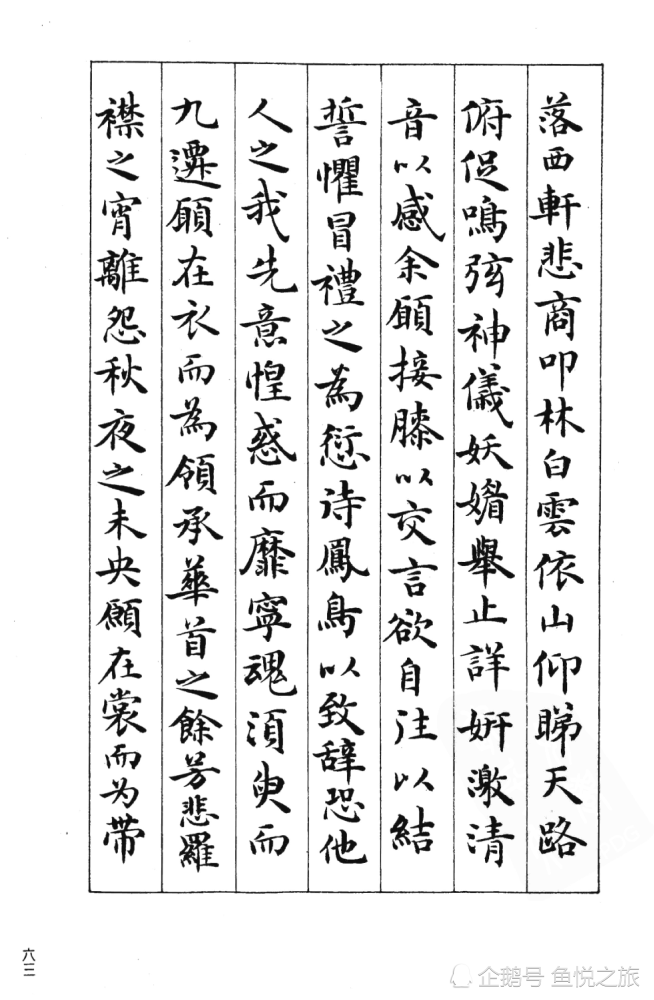 落西軒悲商叩林白雲依山仰睇天路
俯促鳴弦神儀妖媚舉止詳妍激清
音以感余願接膝以交言欲自往以結
誓懼冒禮之為愆待鳳鳥以致辭恐他
人之我先意惶惑而靡寧魂須臾而
九遷願在衣而為領承華首之餘芳悲羅
襟之宵離怨秋夜之未央願在裳而为带
六三
企鹅号 鱼悦之旅